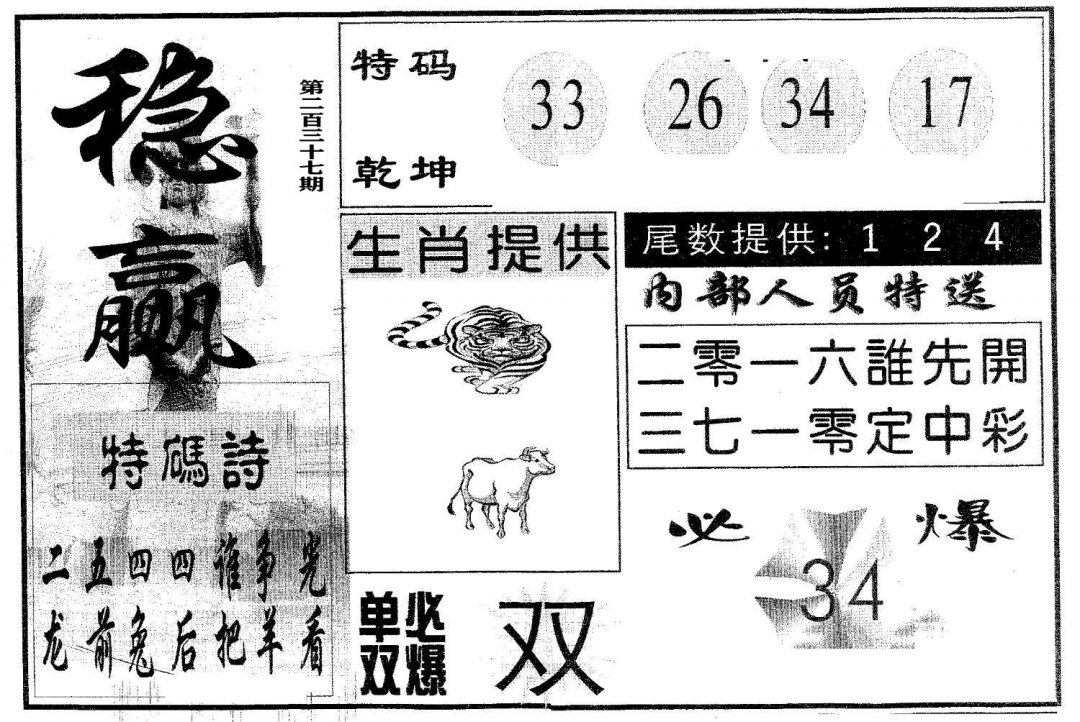 稳赢
第二百三十七期
特码
乾坤
33 26 34 17
生肖提供
尾数提供: 1 2 4
内部人员特送
二零一六誰先開
三七一零定中彩
特碼詩
二五四四谁争光
龙前兔后把羊看
单双
必爆
双
必爆
34